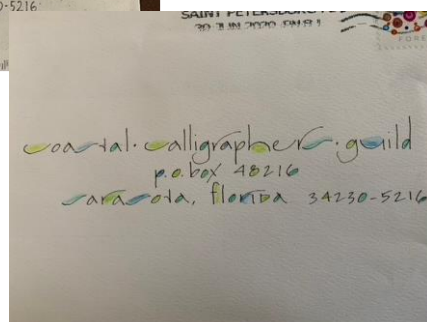 0-5216
SAINT PETERSBURG
30 JUN 2020 PM 8 L
FORE
coastal. calligrapher's. guild
p.o. box 48216
sarasota, florida 34230-5216